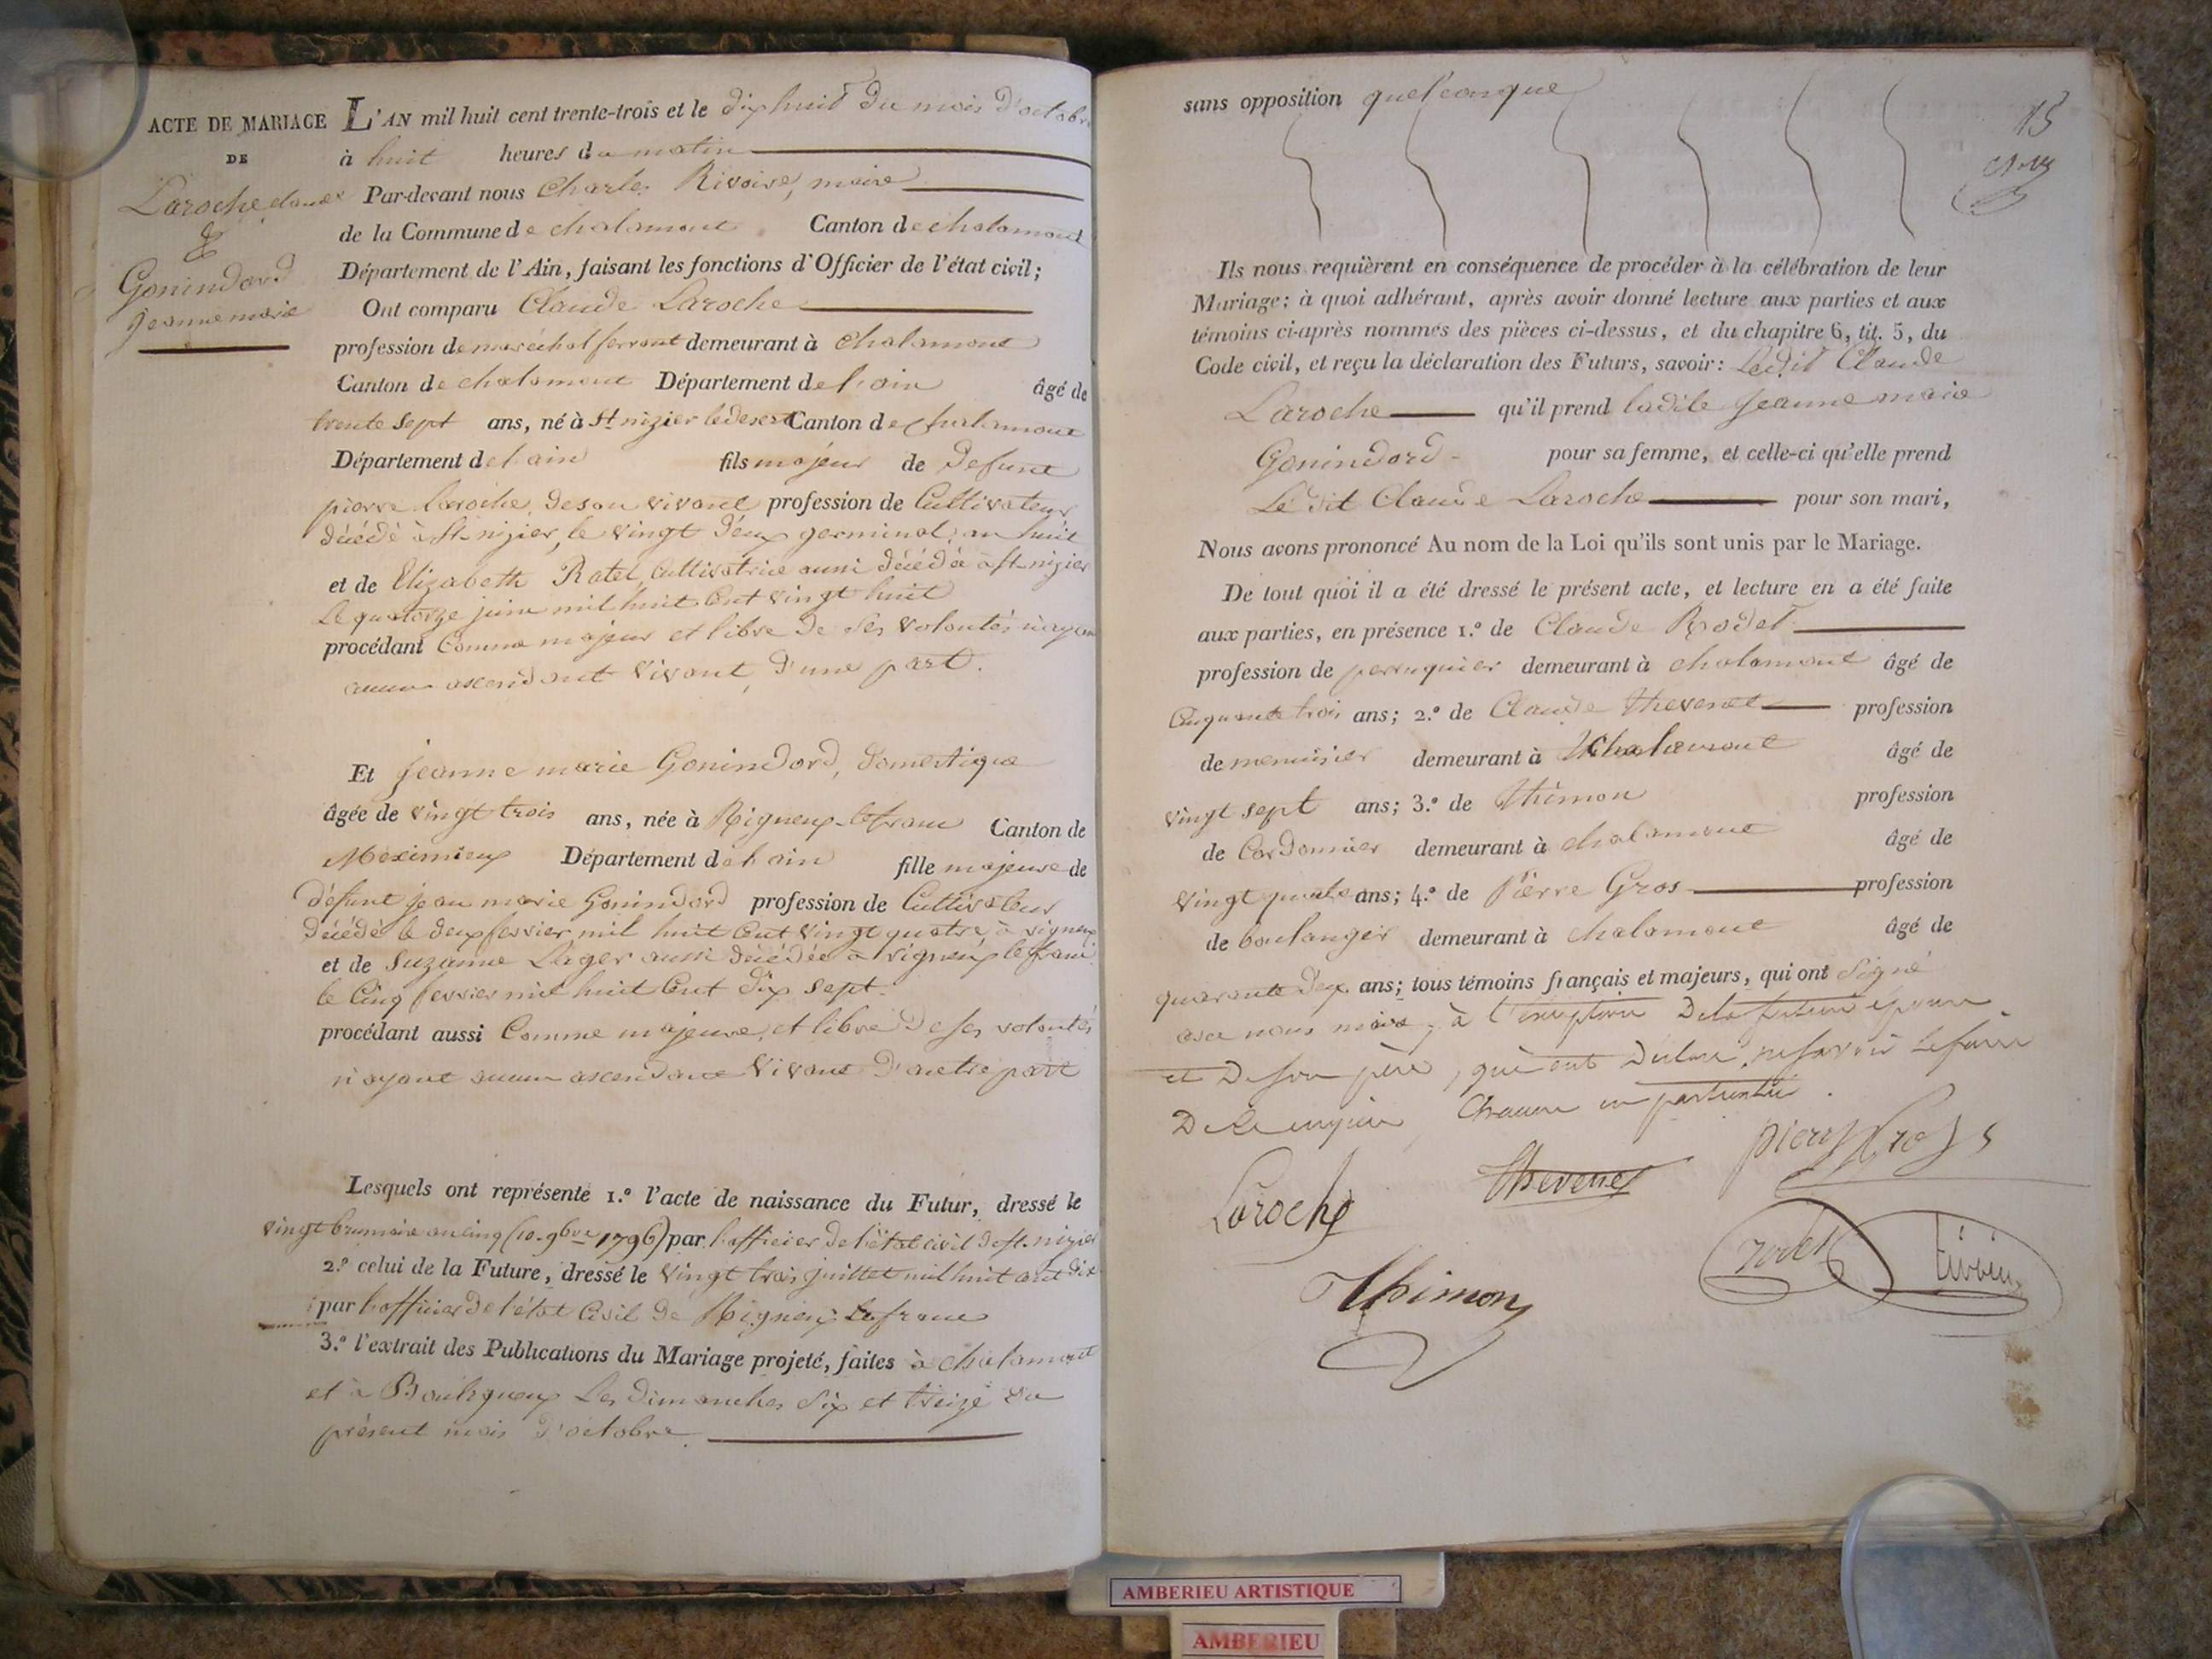 ACTE DE MARIAGE
DE
Laroche claude
&
Gonindard
jeanne marie
L'AN mil huit cent trente-trois et le dix huit du mois d'octobre
à huit heures du matin
Par-devant nous Charles Rivoire, maire
de la Commune de chalamont Canton de chalamont
Département de l'Ain, faisant les fonctions d'Officier de l'état civil;
Ont comparu Claude Laroche
profession de maréchal ferrant demeurant à chalamont
Canton de chalamont Département de l'ain âgé de
trente sept ans, né à St nizier le desert Canton de chalamont
Département de l'ain fils majeur de defunt
pierre laroche, de son vivant profession de Cultivateur
décédé à St-nizier, le vingt deux germinal an huit
et de Elizabeth Ratel, Cultivatrice aussi décédée à st-nizier
Le quatorze juin mil huit Cent vingt huit
procédant Comme majeur et libre de ses volontés n'ayant
aucun ascendant vivant, d'une part.
Et jeanne marie Gonindord, domestique
âgée de vingt trois ans, née à Rigneux-lefranc Canton de
Meximieux Département de l'ain fille majeure de
défunt jean marie Gonindord profession de Cultivateur
décédé le deux fevrier mil huit Cent vingt quatre, à rigneux
et de Suzanne Lager aussi décédée à rigneux lefranc
le Cinq fevrier mil huit Cent dix sept.
procédant aussi Comme majeure, et libre de ses volontés
n'ayant aucun ascendant vivant d'autre part
Lesquels ont représenté 1.º l'acte de naissance du Futur, dressé le
vingt brumaire an cinq (10. 9bre 1796) par l'officier de l'état civil de st-nizier
2.º celui de la Future, dressé le vingt trois juillet mil huit cent dix
par l'officier de l'état Civil de Rigneux Lefranc
3.º l'extrait des Publications du Mariage projeté, faites à chalamont
et à Bouligneux Les dimanches six et treize du
présent mois d'octobre.
15
sans opposition quelconque
Ils nous requièrent en conséquence de procéder à la célébration de leur
Mariage: à quoi adhérant, après avoir donné lecture aux parties et aux
témoins ci-après nommés des pièces ci-dessus, et du chapitre 6, tit. 5, du
Code civil, et reçu la déclaration des Futurs, savoir: Ledit Claude
Laroche qu'il prend ladite Jeanne marie
Gonindord - pour sa femme, et celle-ci qu'elle prend
Le dit Claude Laroche pour son mari,
Nous avons prononcé Au nom de la Loi qu'ils sont unis par le Mariage.
De tout quoi il a été dressé le présent acte, et lecture en a été faite
aux parties, en présence 1.º de Claude Rodet
profession de perruquier demeurant à chalamont âgé de
Cinquante trois ans; 2.º de Claude Thevenet profession
de menuisier demeurant à Chalamont âgé de
vingt sept ans; 3.º de Thimon profession
de Cordonnier demeurant à chalamont âgé de
vingt quatre ans; 4.º de Pierre Gros profession
de boulanger demeurant à chalamont âgé de
quarante deux ans; tous témoins français et majeurs, qui ont signé
avec nous maire, à l'exception De la future epouse
et De son père, qui ont declaré ne savoir le faire
De le enquis Chacun en particulier.
Laroche
Thevenet
pierre Gros
Thimon
rodet
AMBERIEU ARTISTIQUE
AMBERIEU